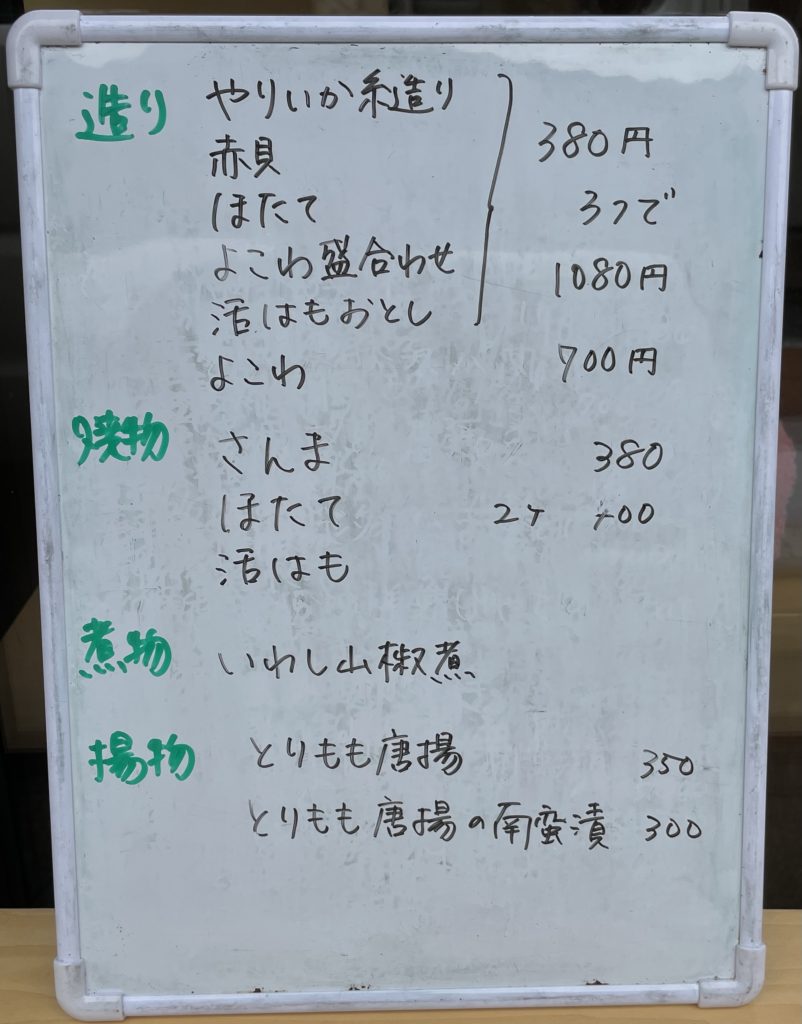 造り やりいか糸造り
赤貝 380円
ほたて 3つで
よこわ盛合わせ 1080円
活はもおとし
よこわ 700円
焼物 さんま 380
ほたて 2ケ 400
活はも
煮物 いわし山椒煮
揚物 とりもも唐揚 350
とりもも唐揚の南蛮漬 300